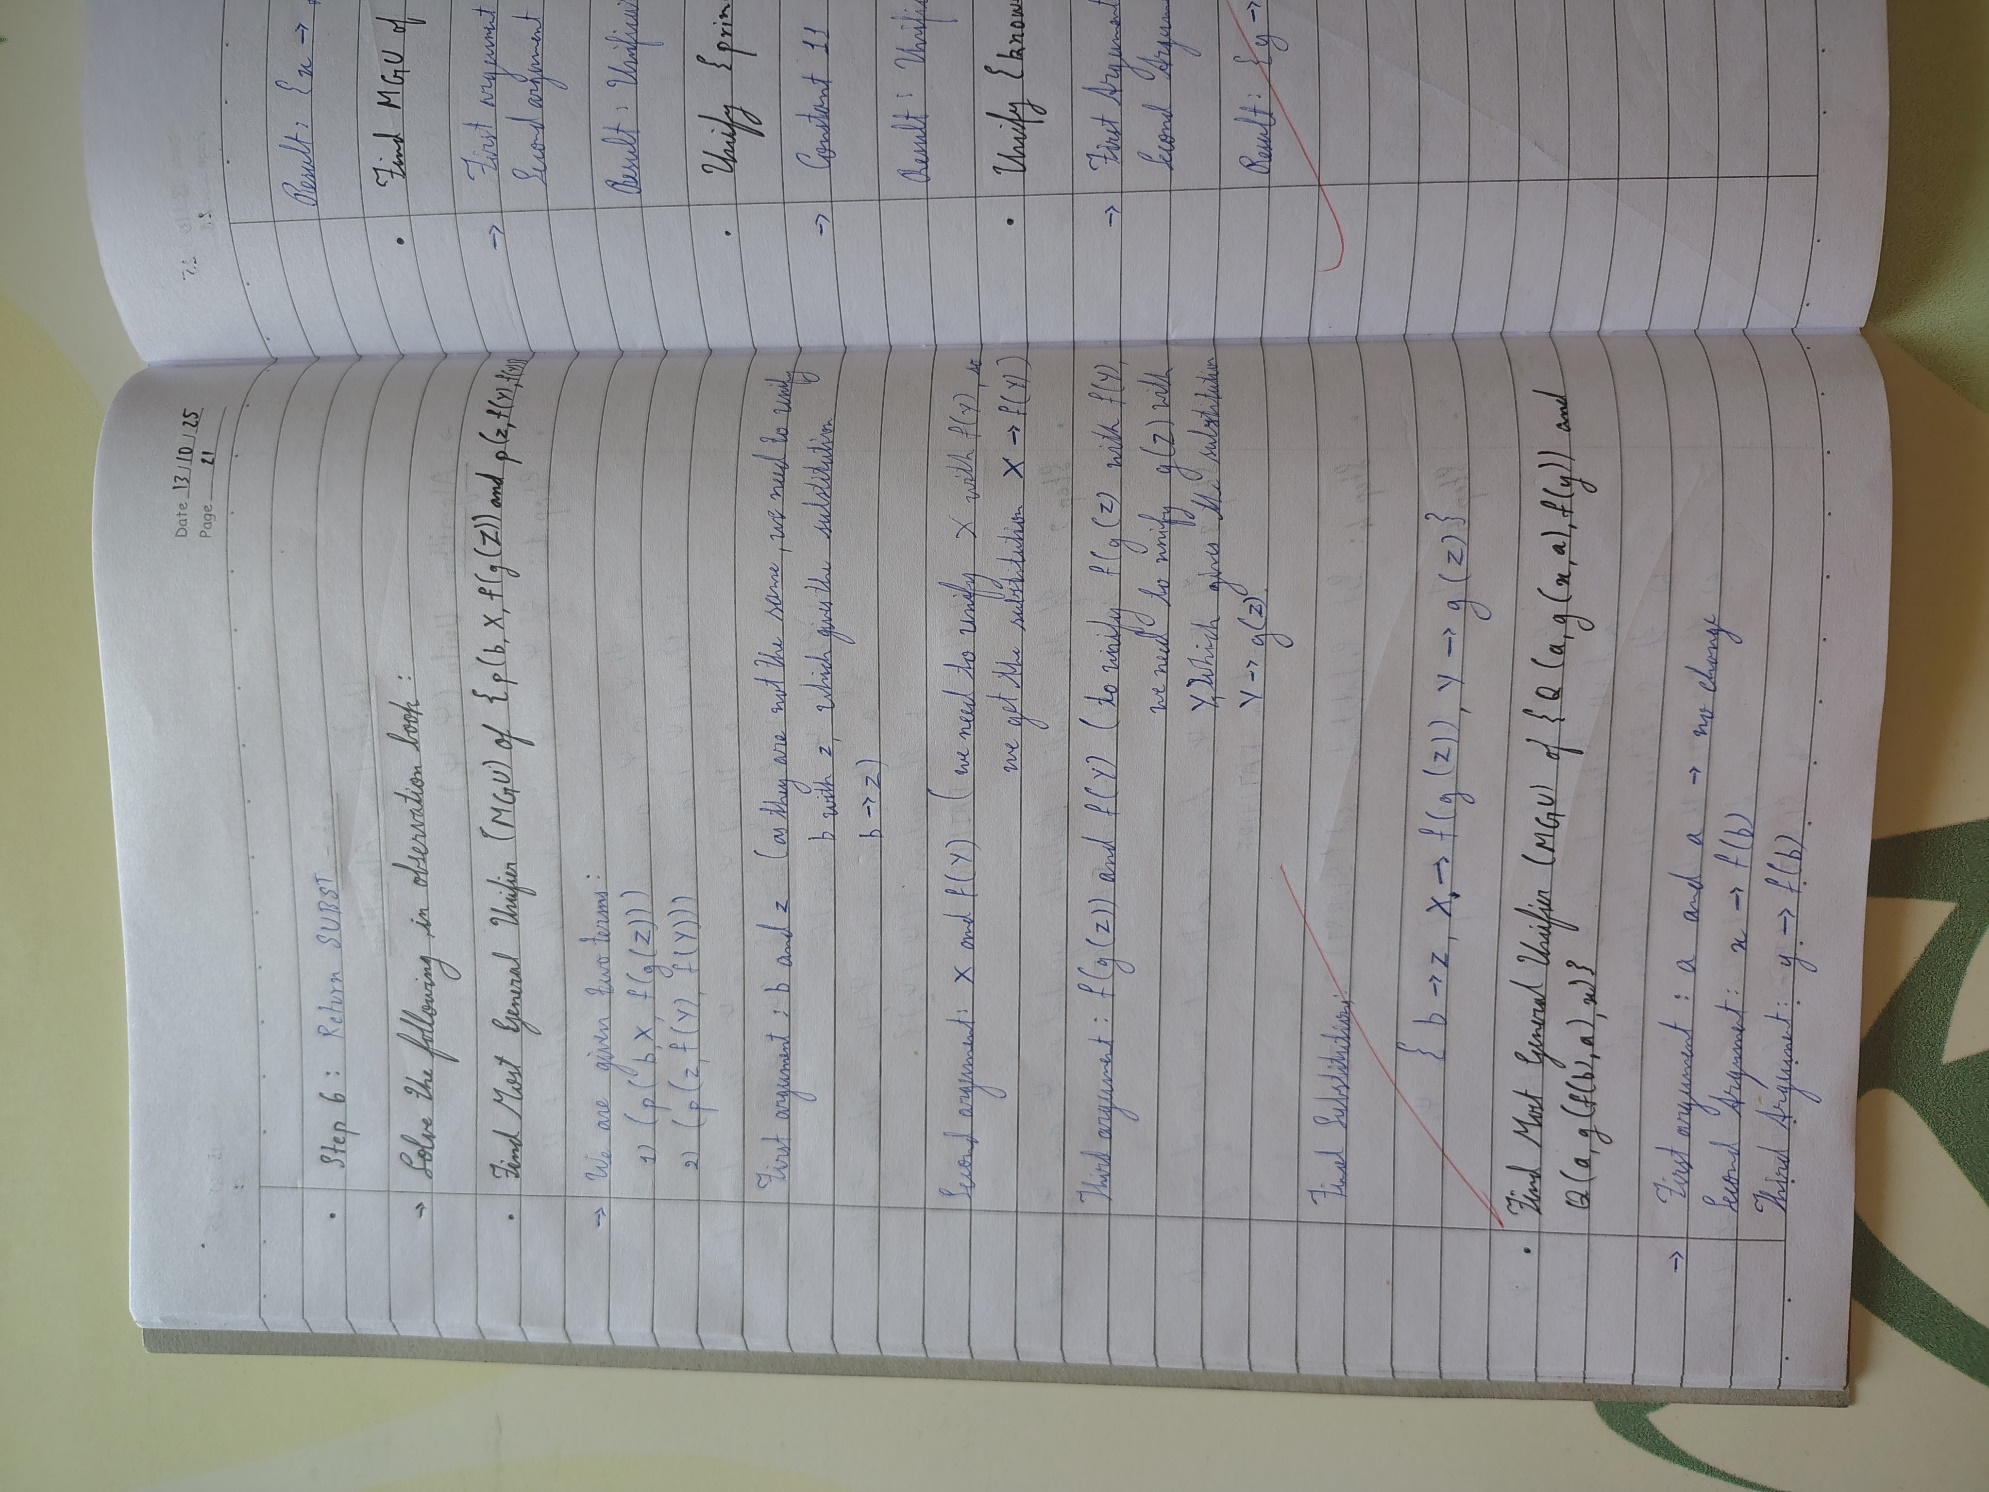 Date 13/10/25
Page 21
• Step 6 : Return SUBST
→ Solve the following in observation book :
• Find Most General Unifier (MGU) of {p(b, X, f(g(Z)) and p(z, f(Y), f(Y))
→ We are given two terms :
1) (p(b, X, f(g(Z))))
2) (p(z, f(Y), f(Y)))
First argument : b and z (as they are not the same, we need to unify
b with z, which gives the substitution
b → z)
Second argument: X and f(Y) (we need to unify X with f(Y), so
we get the substitution X → f(Y))
Third argument : f(g(z)) and f(Y) (to unify f(g(z) with f(Y),
we need to unify g(z) with
Y, which gives the substitution
Y → g(z)
Final Substitution:
{ b → z, X → f(g(z)), Y → g(z)}
• Find Most General Unifier (MGU) of {Q(a, g(x, a), f(y)) and
Q(a, g(f(b), a), x)}
→ First argument : a and a → no change
Second Argument : x → f(b)
Third Argument : y → f(b)
Result : {x →
• Find MGU of
→ First argument
Second argument
Result : Unific
• Unify {prin
→ Constant 11
Result : Unific
• Unify {know
→ First Argument
Second Argum
Result : {y →